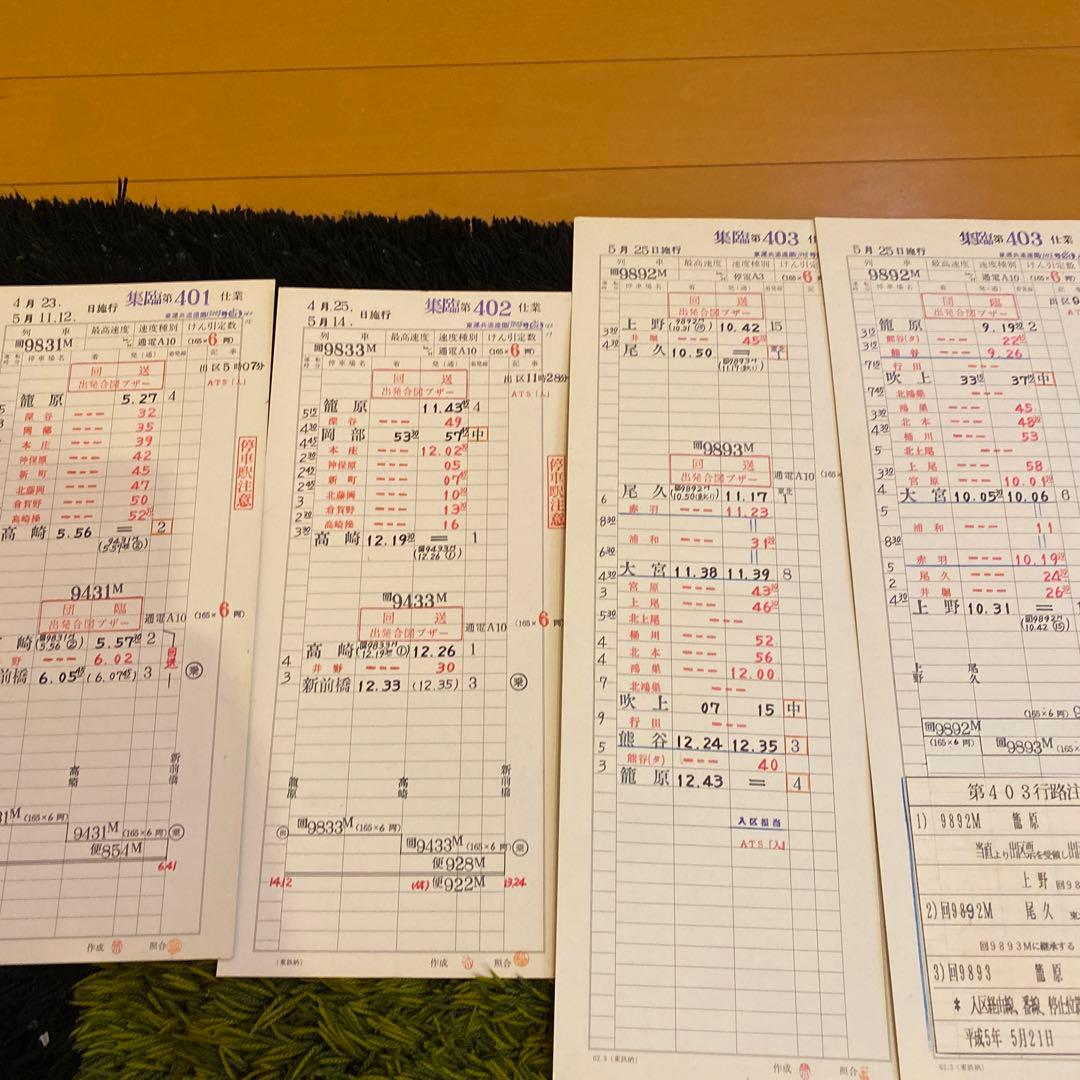 4月23.
5月11.12.
日施行
集臨第401仕業
列車 最高速度 速度種別 けん引定数
回9831M 通電A10 (165×6両)
停車場名 着 発(通) 着発線 記事
回送
出発合図ブザー
出区5時07分
ATS〔入〕
籠原 5.27 4
深谷 --- 32
岡部 --- 35
本庄 --- 39
神保原 --- 42
新町 --- 45
北藤岡 --- 47
倉賀野 --- 50
高崎操 --- 52
高崎 5.56 = 2
停車駅注意
9431M
団臨
出発合図ブザー
通電A10 (165×6両)
崎 5.57 2
野 --- 6.02
前橋 6.05 (6.07) 3 乗
高崎
新前橋
31M (165×6両)
9431M (165×6両) 乗
便854M
641
作成 照合
4月25.
5月14.
日施行
集臨第402仕業
列車 最高速度 速度種別 けん引定数
回9833M 通電A10 (165×6両)
停車場名 着 発(通) 着発線 記事
回送
出発合図ブザー
出区11時28分
ATS〔入〕
籠原 11.43 4
深谷 --- 49
岡部 53 57 中
本庄 --- 12.02
神保原 --- 05
新町 --- 07
北藤岡 --- 10
倉賀野 --- 13
高崎操 --- 16
高崎 12.19 = 1
(回9433M
12.26 ①)
停車駅注意
回9433M
回送
出発合図ブザー
通電A10 (165×6
高崎 (回9833M 12.19 ①) 12.26 1
井野 --- 30
新前橋 12.33 (12.35) 3 乗
籠原
高崎
新前橋
回9833M (165×6両)
回9433M (165×6両) 乗
便928M
便922M
1412
1324
(東鉄納) 作成 照合
5月25日施行
集臨第403
列車 最高速度 速度種別 けん引定数
回9892M 停電A3 (165×6
停車場名 着 発(通) 着発線 記
回送
出発合図ブザー
上野 (9892M 10.31 ⑮) 10.42 15
井堀 --- 45
尾久 10.50 = 東北1
回9893M
回送
出発合図ブザー
通電A10 (165×
尾久 11.17 東北1
赤羽 --- 11.23
浦和 --- 31
大宮 11.38 11.39 8
宮原 --- 43
上尾 --- 46
北上尾 ---
桶川 --- 52
北本 --- 56
鴻巣 --- 12.00
北鴻巣 ---
吹上 07 15 中
行田 ---
熊谷 12.24 12.35 3
熊谷(タ) --- 40
籠原 12.43 = 4
入区担当
ATS〔入〕
62.3 (東鉄納)
作成 照合
5月25日施行
集臨第403仕業
列車 最高速度 速度種別 けん引定数
9892M 通電A10 (165×6
停車場名 着 発(通) 着発線 記
団臨
出発合図ブザー
籠原 9.19 2
熊谷(タ) --- 22
熊谷 --- 9.26
行田 ---
吹上 33 37 中
北鴻巣
鴻巣 --- 45
北本 --- 48
桶川 --- 53
北上尾 ---
上尾 --- 58
宮原 --- 10.01
大宮 10.05 10.06 6
浦和 --- 11
赤羽 --- 10.19
尾久 --- 24
井堀 --- 26
上野 10.31 =
(回9892M
10.42 ⑮)
上野
尾久
(165×6両)
回9892M
(165×6両)
回9893M (165×
第403行路注
1) 9892M 籠原
当直より出区票を受領し出
上野 回98
2)回9892M 尾久
回9893Mに継承する
3)回9893 籠原
* 入区経由線、番線、停止位置
平成5年 5月21日
62.3 (東鉄納)